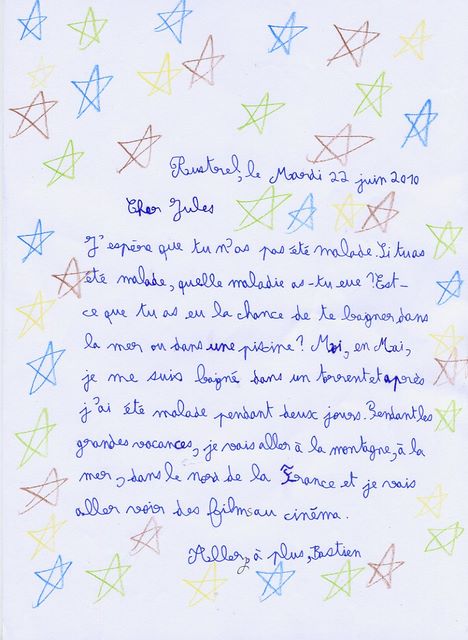 Rustrel, le Mardi 22 juin 2010
Cher Jules
J'espère que tu n'as pas été malade. Si tu as
été malade, quelle maladie as-tu eue ? Est-
ce que tu as eu la chance de te baigner dans
la mer ou dans une piscine ? Moi, en Mai,
je me suis baigné dans un torrent et après
j'ai été malade pendant deux jours. Pendant les
grandes vacances, je vais aller à la montagne, à la
mer, dans le nord de la France et je vais
aller voir des films au cinéma.
Aller, à plus, Bastien